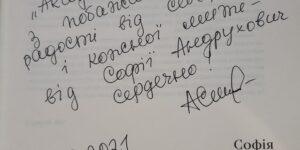 "Ака
з побажа
радості від
і кожної мите-
від Софії Андрухович
сердечно!
2021
Софія